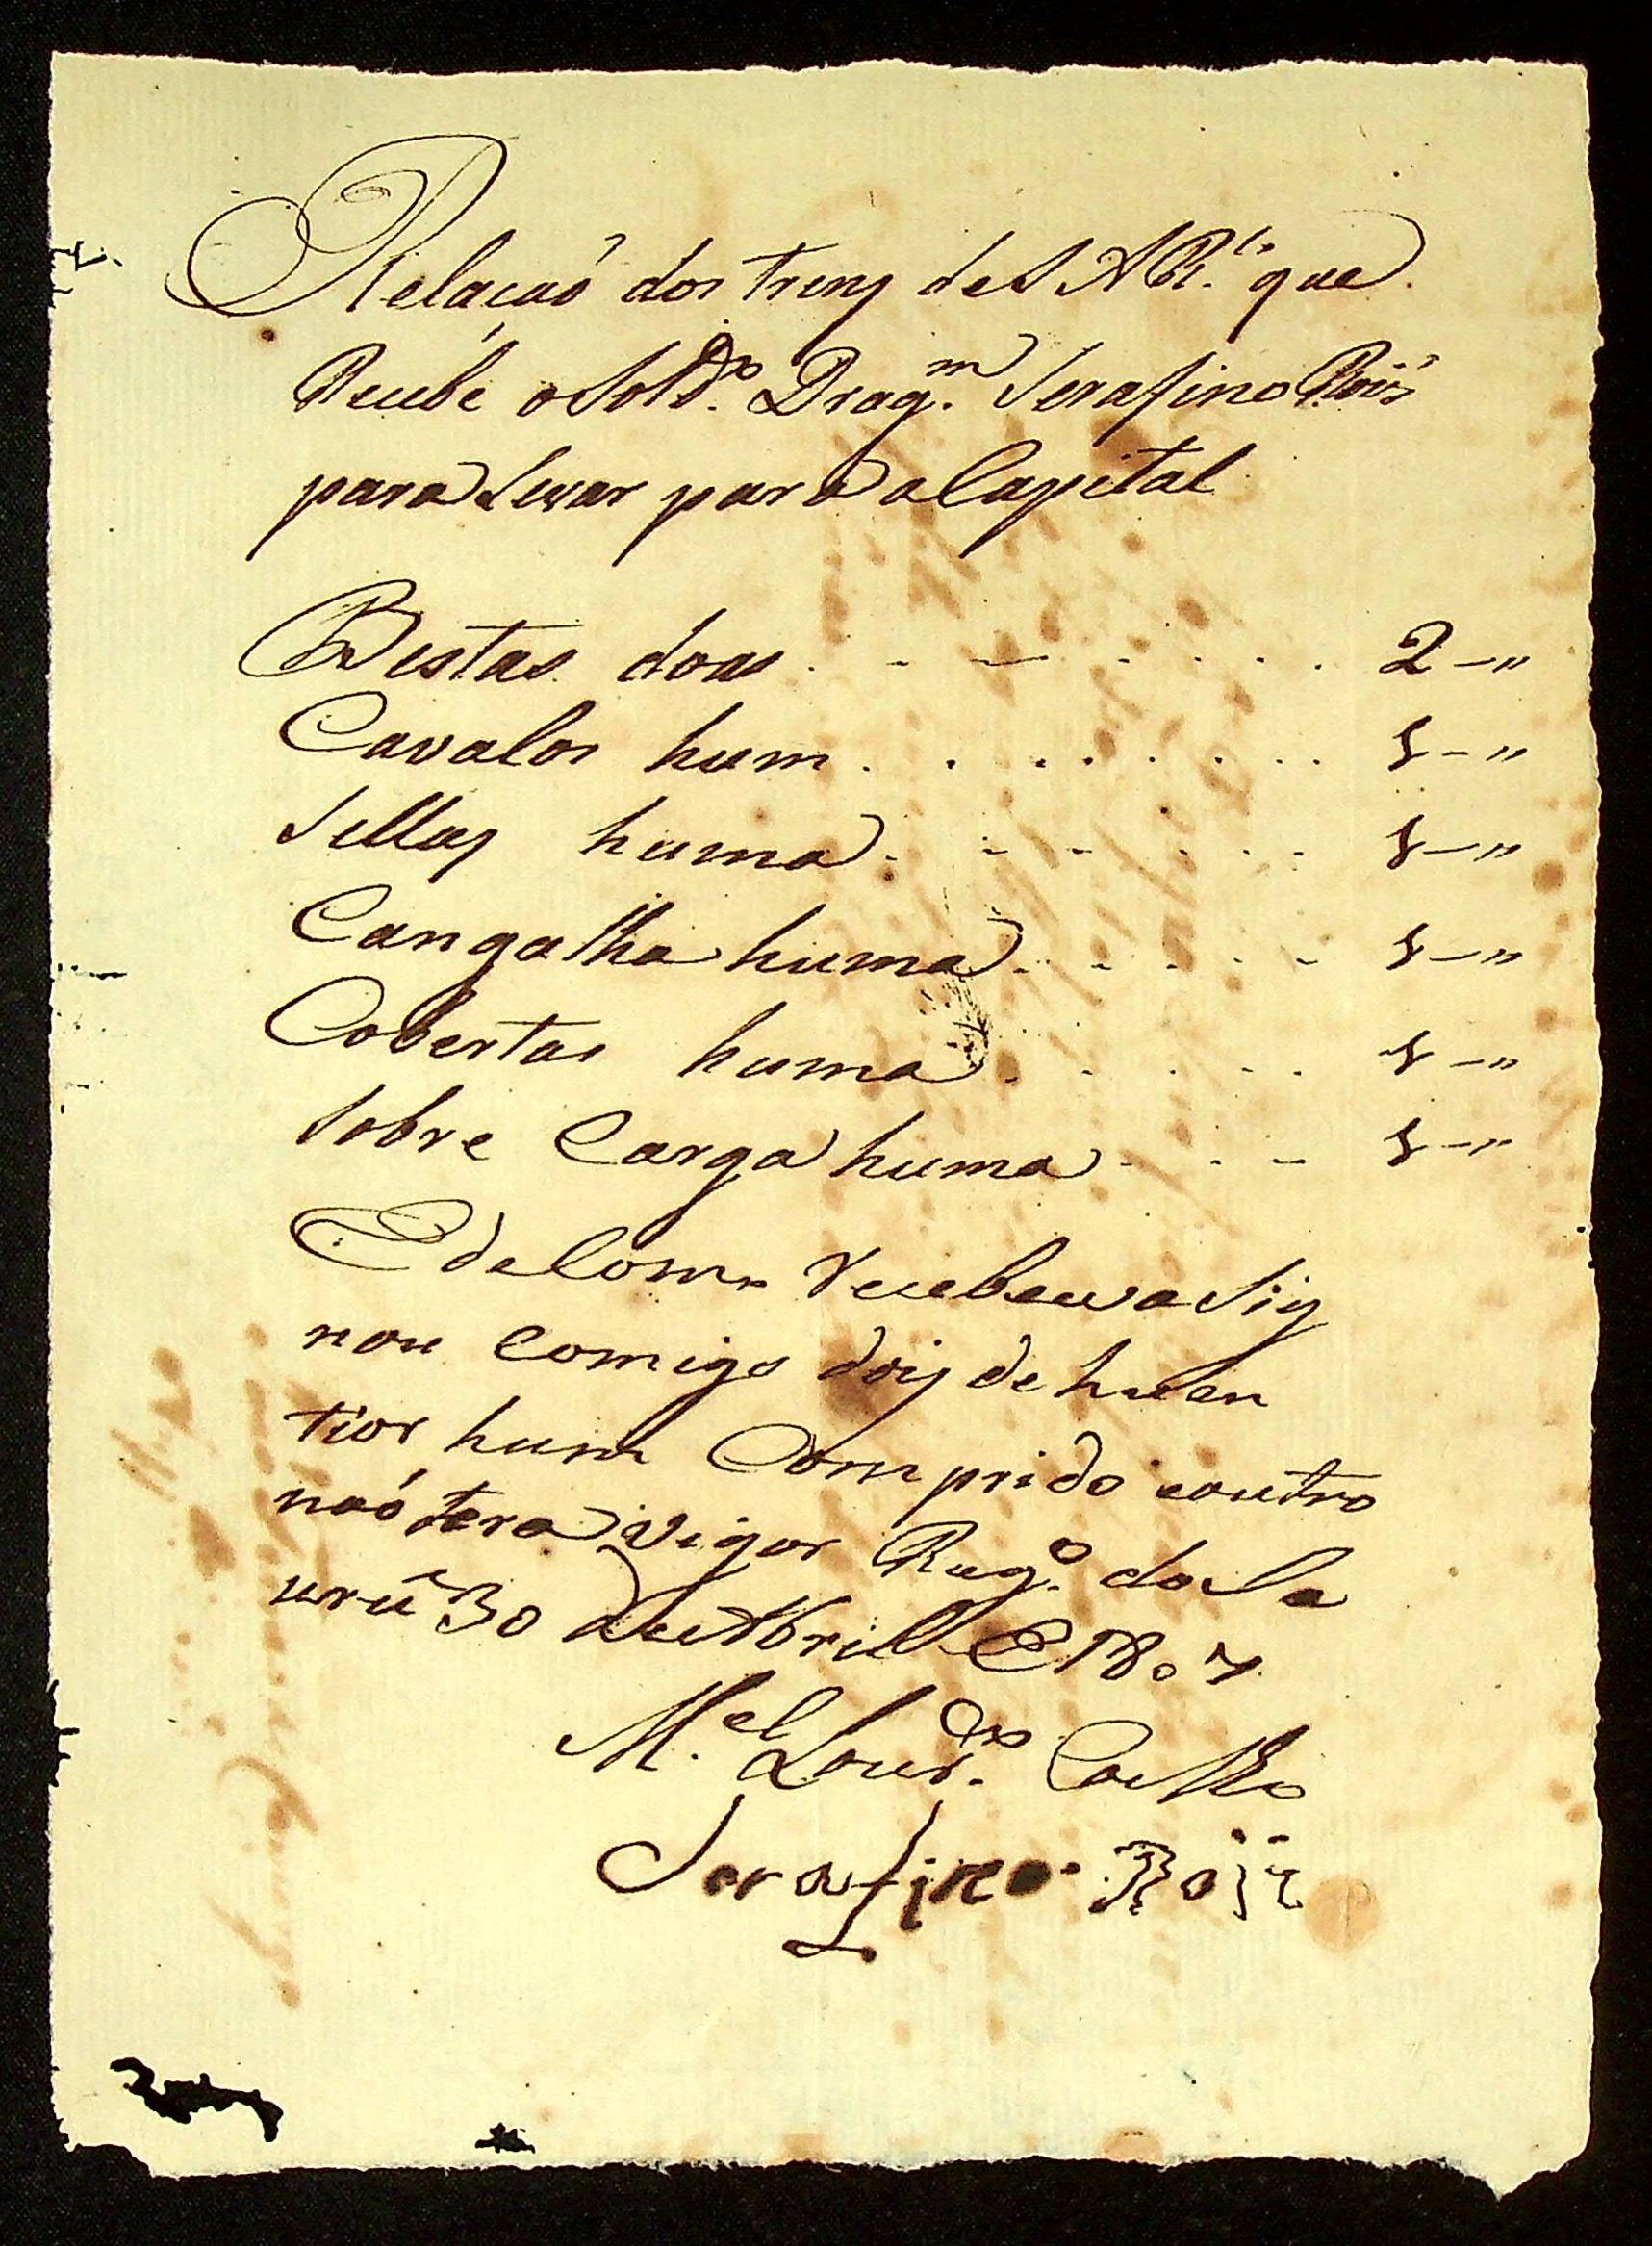 Relaçaó dos trens de S A R.^l que
Recebe o Sold.^do Drag.^m Serafino Roiz
para Levar para a Capital
Bestas doas . . . . . . . 2 —"
Cavalos hum . . . . . . . . 1 —"
Sellas huma . . . . . . 1 —"
Cangalha huma . . . . . 1 —"
Cobertas huma . . . . . 1 —"
Sobre Carga huma . . . 1 —"
E de Como Recebeu aSig
nou Comigo dois de huen
tior hum Comprido eoutro
naó tera vigor Reg.^o do Ja
urú 30 de Abril E 1807
M.^el Lour.^do Coelho
Serafino Roiz